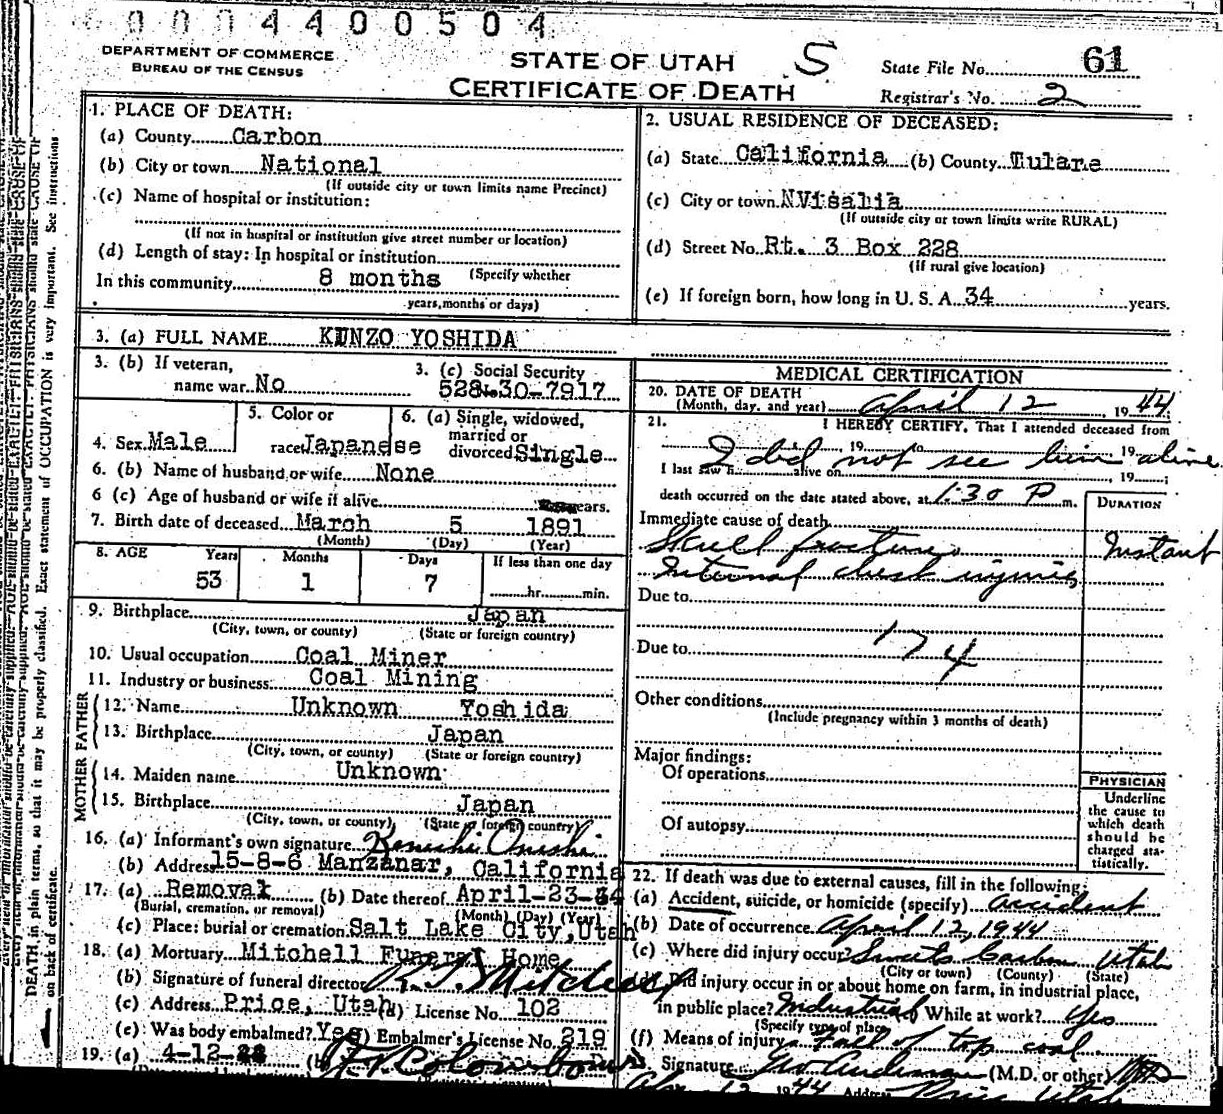 0004400504
DEPARTMENT OF COMMERCE
BUREAU OF THE CENSUS
STATE OF UTAH S
CERTIFICATE OF DEATH
State File No. 61
Registrar's No. 2
1. PLACE OF DEATH:
(a) County Carbon
(b) City or town National
(If outside city or town limits name Precinct)
(c) Name of hospital or institution:
(If not in hospital or institution give street number or location)
(d) Length of stay: In hospital or institution
(Specify whether
In this community 8 months
years, months or days)
2. USUAL RESIDENCE OF DECEASED:
(a) State California (b) County Tulare
(c) City or town NVisalia
(If outside city or town limits write RURAL)
(d) Street No. Rt. 3 Box 228
(If rural give location)
(e) If foreign born, how long in U. S. A. 34 years.
3. (a) FULL NAME KUNZO YOSHIDA
3. (b) If veteran,
name war No
3. (c) Social Security
No. 528-30-7917
4. Sex Male
5. Color or
race Japanese
6. (a) Single, widowed,
married or
divorced Single
6. (b) Name of husband or wife None
6 (c) Age of husband or wife if alive years.
7. Birth date of deceased March 5 1891
(Month) (Day) (Year)
8. AGE Years Months Days If less than one day
53 1 7 hr. min.
9. Birthplace Japan
(City, town, or county) (State or foreign country)
10. Usual occupation Coal Miner
11. Industry or business Coal Mining
FATHER
12. Name Unknown Yoshida
13. Birthplace Japan
(City, town, or county) (State or foreign country)
MOTHER
14. Maiden name Unknown
15. Birthplace Japan
(City, town, or county) (State or foreign country)
16. (a) Informant's own signature
(b) Address 15-8-6 Manzanar, California
17. (a) Removal (b) Date thereof April-23-44
(Burial, cremation, or removal) (Month) (Day) (Year)
(c) Place: burial or cremation Salt Lake City, Utah
18. (a) Mortuary Mitchell Funeral Home
(b) Signature of funeral director R. J. Mitchell
(c) Address Price, Utah (d) License No. 102
(e) Was body embalmed? Yes (f) Embalmer's License No. 219
19. (a) 4-12- (b)
MEDICAL CERTIFICATION
20. DATE OF DEATH
(Month, day, and year) April 12, 1944
21. I HEREBY CERTIFY, That I attended deceased from
, 19 to , 19
I did not see him alive
I last saw h alive on , 19 ;
death occurred on the date stated above, at 1:30 P m.
DURATION
Immediate cause of death
Skull fracture Instant
Internal chest injuries
Due to
Due to 174
Other conditions
(Include pregnancy within 3 months of death)
Major findings:
Of operations
Of autopsy
PHYSICIAN
Underline
the cause to
which death
should be
charged sta-
tistically.
22. If death was due to external causes, fill in the following:
(a) Accident, suicide, or homicide (specify) accident
(b) Date of occurrence April 12, 1944
(c) Where did injury occur Sweets Carbon Utah
(City or town) (County) (State)
(d) Did injury occur in or about home on farm, in industrial place,
in public place? Industrial While at work? yes
(Specify type of place)
(f) Means of injury Fall of top coal.
Signature (M.D. or other) MD
12 1944 Address Price Utah
DEATH in plain terms, so that it may be properly classified. Exact statement of OCCUPATION is very important. See instructions
on back of certificate.